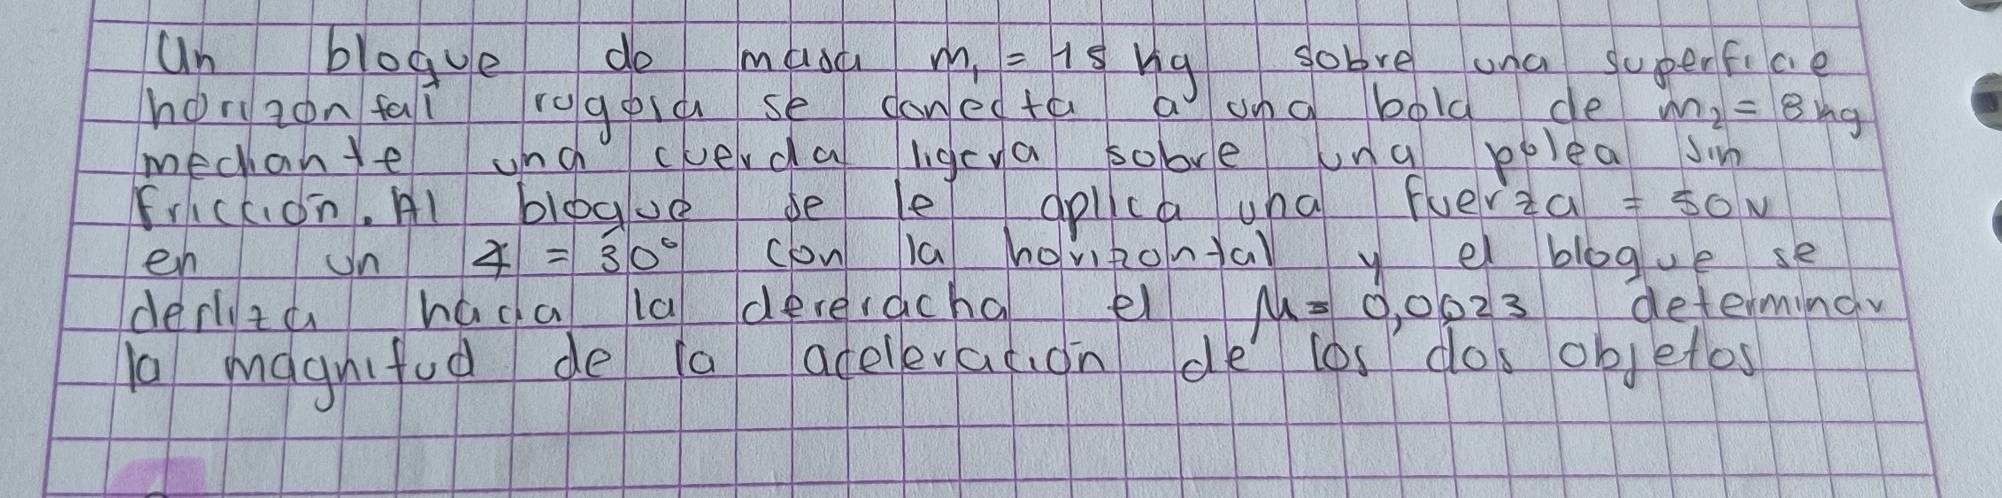 Un bloque de masa m₁ = 15 kg sobre una superficie
horizontal rugosa se conecta a una bola de m₂ = 8kg
mediante una cuerda ligera sobre una polea sin
fricción. Al bloque se le aplica una fuerza = 50N
en un ∡ = 30° con la horizontal y el bloque se
desliza hacia la dereracha el μ = 0,0023 determinar
la magnitud de la aceleración de los dos objetos